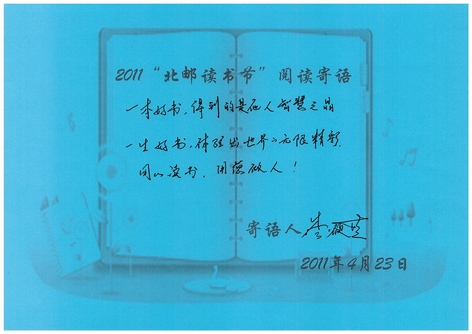 2011“北邮读书节”阅读寄语
一本好书，得到的是他人智慧之晶
一生好书，体现出世界的无限精彩
用心读书，用德做人！
寄语人
2011年4月23日